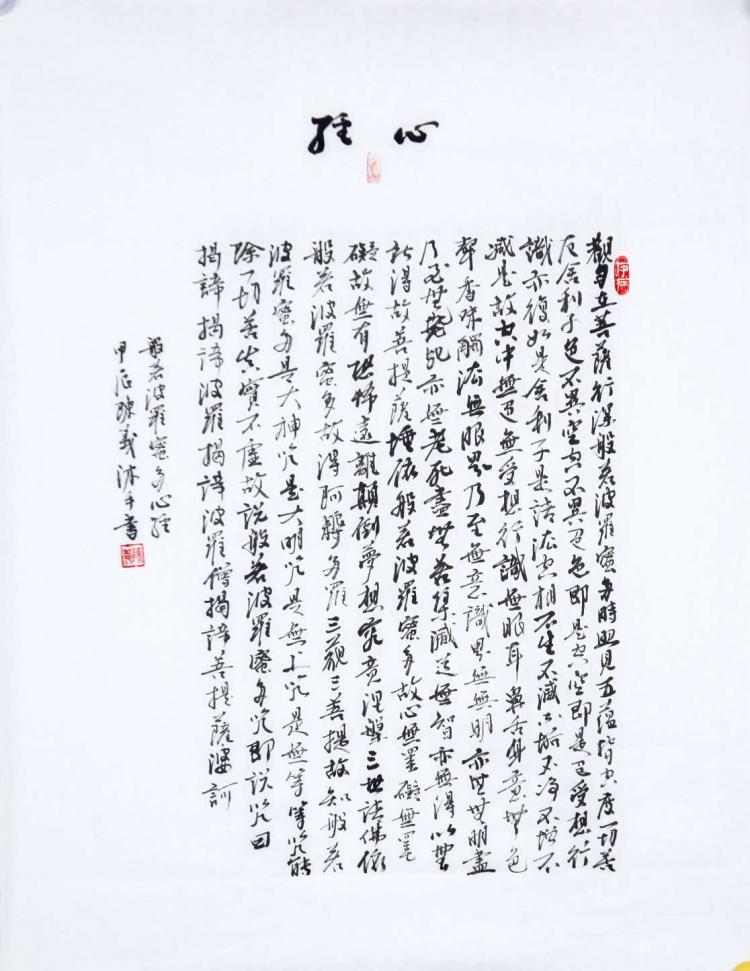 心經
觀自在菩薩行深般若波羅蜜多時照見五蘊皆空度一切苦
厄舍利子色不異空空不異色色即是空空即是色受想行
識亦復如是舍利子是諸法空相不生不滅不垢不淨不增不
減是故空中無色無受想行識無眼耳鼻舌身意無色
聲香味觸法無眼界乃至無意識界無無明亦無無明盡
乃至無老死亦無老死盡無苦集滅道無智亦無得以無
所得故菩提薩埵依般若波羅蜜多故心無罣礙無罣
礙故無有恐怖遠離顛倒夢想究竟涅槃三世諸佛依
般若波羅蜜多故得阿耨多羅三藐三菩提故知般若
波羅蜜多是大神咒是大明咒是無上咒是無等等咒能
除一切苦真實不虛故說般若波羅蜜多咒即說咒曰
揭諦揭諦波羅揭諦波羅僧揭諦菩提薩婆訶
般若波羅蜜多心經
甲辰陳義沐手書